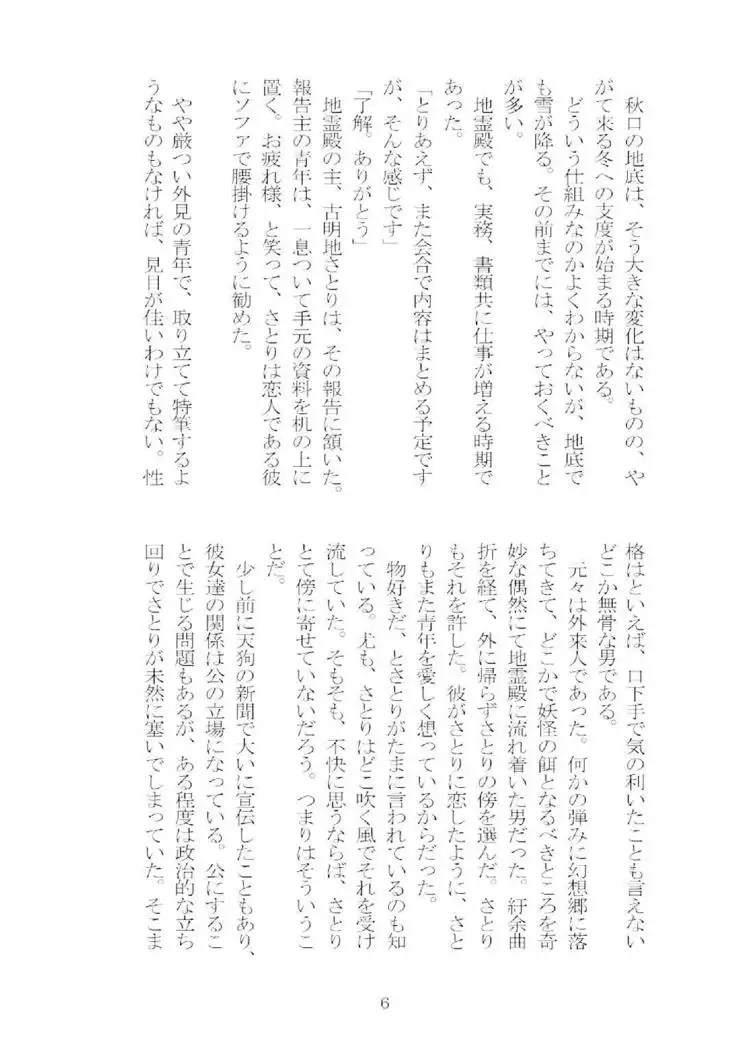 秋口の地底は、そう大きな変化はないものの、や
がて来る冬への支度が始まる時期である。
どういう仕組みなのかよくわからないが、地底で
も雪が降る。その前までには、やっておくべきこと
が多い。
地霊殿でも、実務、書類共に仕事が増える時期で
あった。
「とりあえず、また会合で内容はまとめる予定です
が、そんな感じです」
「了解。ありがとう」
地霊殿の主、古明地さとりは、その報告に頷いた。
報告主の青年は、一息ついて手元の資料を机の上に
置く。お疲れ様、と笑って、さとりは恋人である彼
にソファで腰掛けるように勧めた。
やや厳つい外見の青年で、取り立てて特筆するよ
うなものもなければ、見目が佳いわけでもない。性
格はといえば、口下手で気の利いたことも言えない
どこか無骨な男である。
元々は外来人であった。何かの弾みに幻想郷に落
ちてきて、どこかで妖怪の餌となるべきところを奇
妙な偶然にて地霊殿に流れ着いた男だった。紆余曲
折を経て、外に帰らずさとりの傍を選んだ。さとり
もそれを許した。彼がさとりに恋したように、さと
りもまた青年を愛しく想っているからだった。
物好きだ、とさとりがたまに言われているのも知
っている。尤も、さとりはどこ吹く風でそれを受け
流していた。そもそも、不快に思うならば、さとり
とて傍に寄せていないだろう。つまりはそういうこ
とだ。
少し前に天狗の新聞で大いに宣伝したこともあり、
彼女達の関係は公の立場になっている。公にするこ
とで生じる問題もあるが、ある程度は政治的な立ち
回りでさとりが未然に塞いでしまっていた。そこま
6